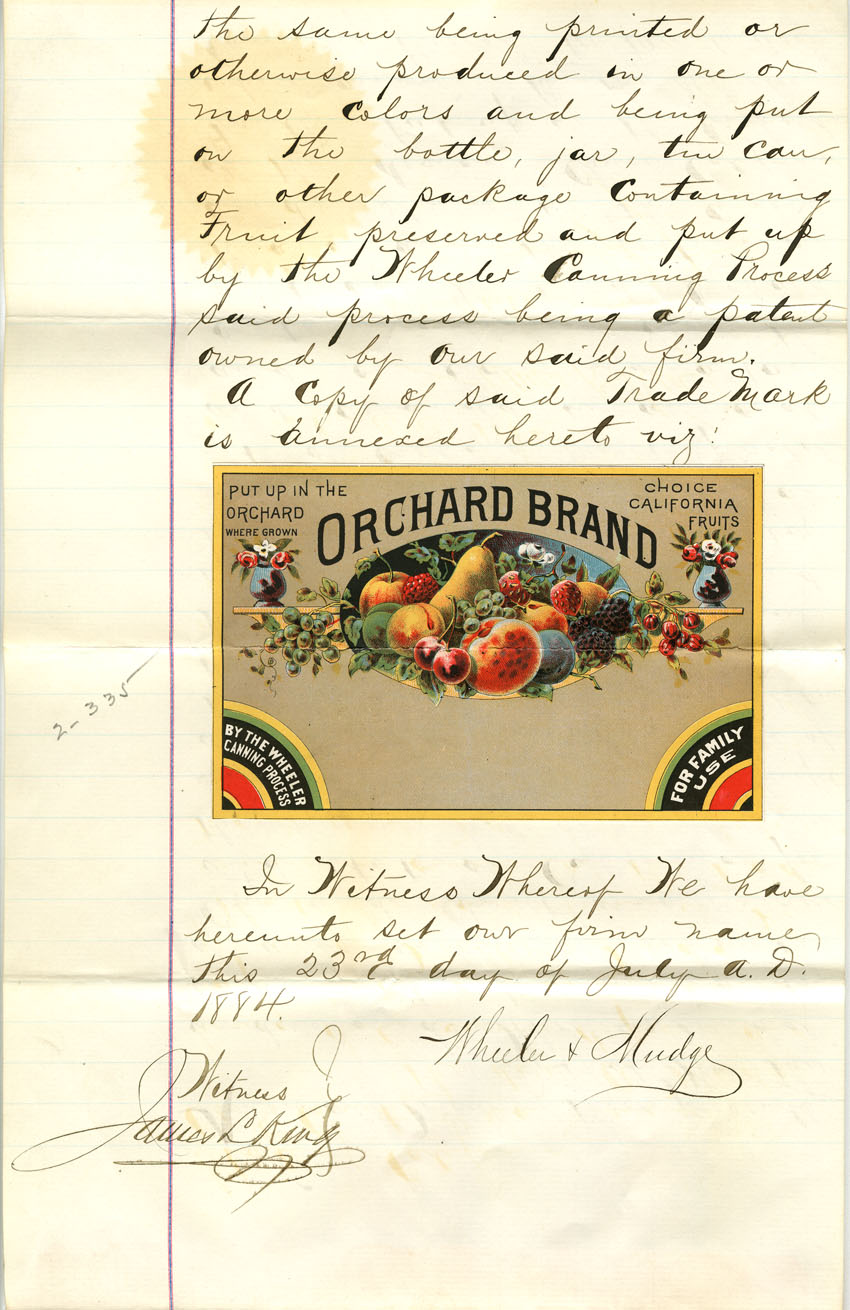 the same being printed or
otherwise produced in one or
more colors and being put
on the bottle, jar, tin can,
or other package Containing
Fruit preserved and put up
by the Wheeler Canning Process
said process being a patent
owned by our said firm.
A Copy of said Trade Mark
is annexed hereto viz:
PUT UP IN THE
ORCHARD
WHERE GROWN
ORCHARD BRAND
CHOICE
CALIFORNIA
FRUITS
2-335
BY THE WHEELER
CANNING PROCESS
FOR FAMILY
USE
In Witness Whereof We have
hereunto set our firm name
this 23rd day of July A.D.
1884.
Wheeler & Mudge
Witness
James L King